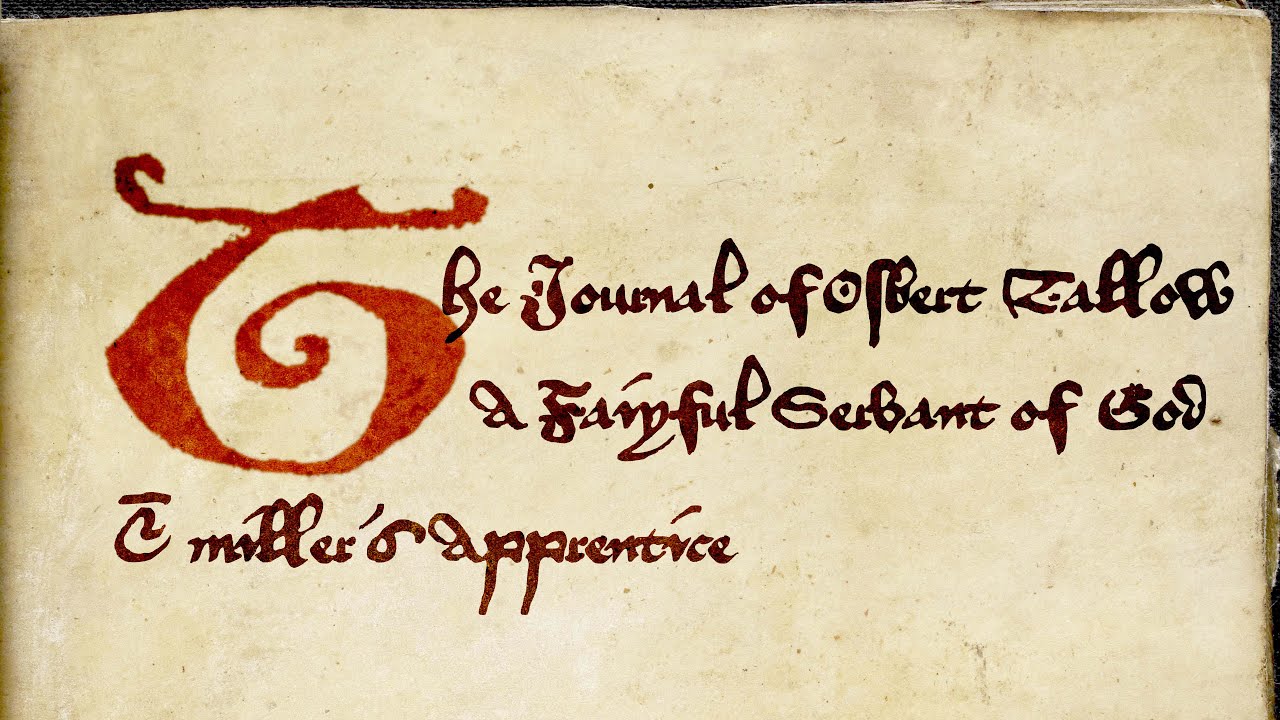 The Journal of Oſbert Tallow
A Faiyful Servant of God
& miller's Apprentice